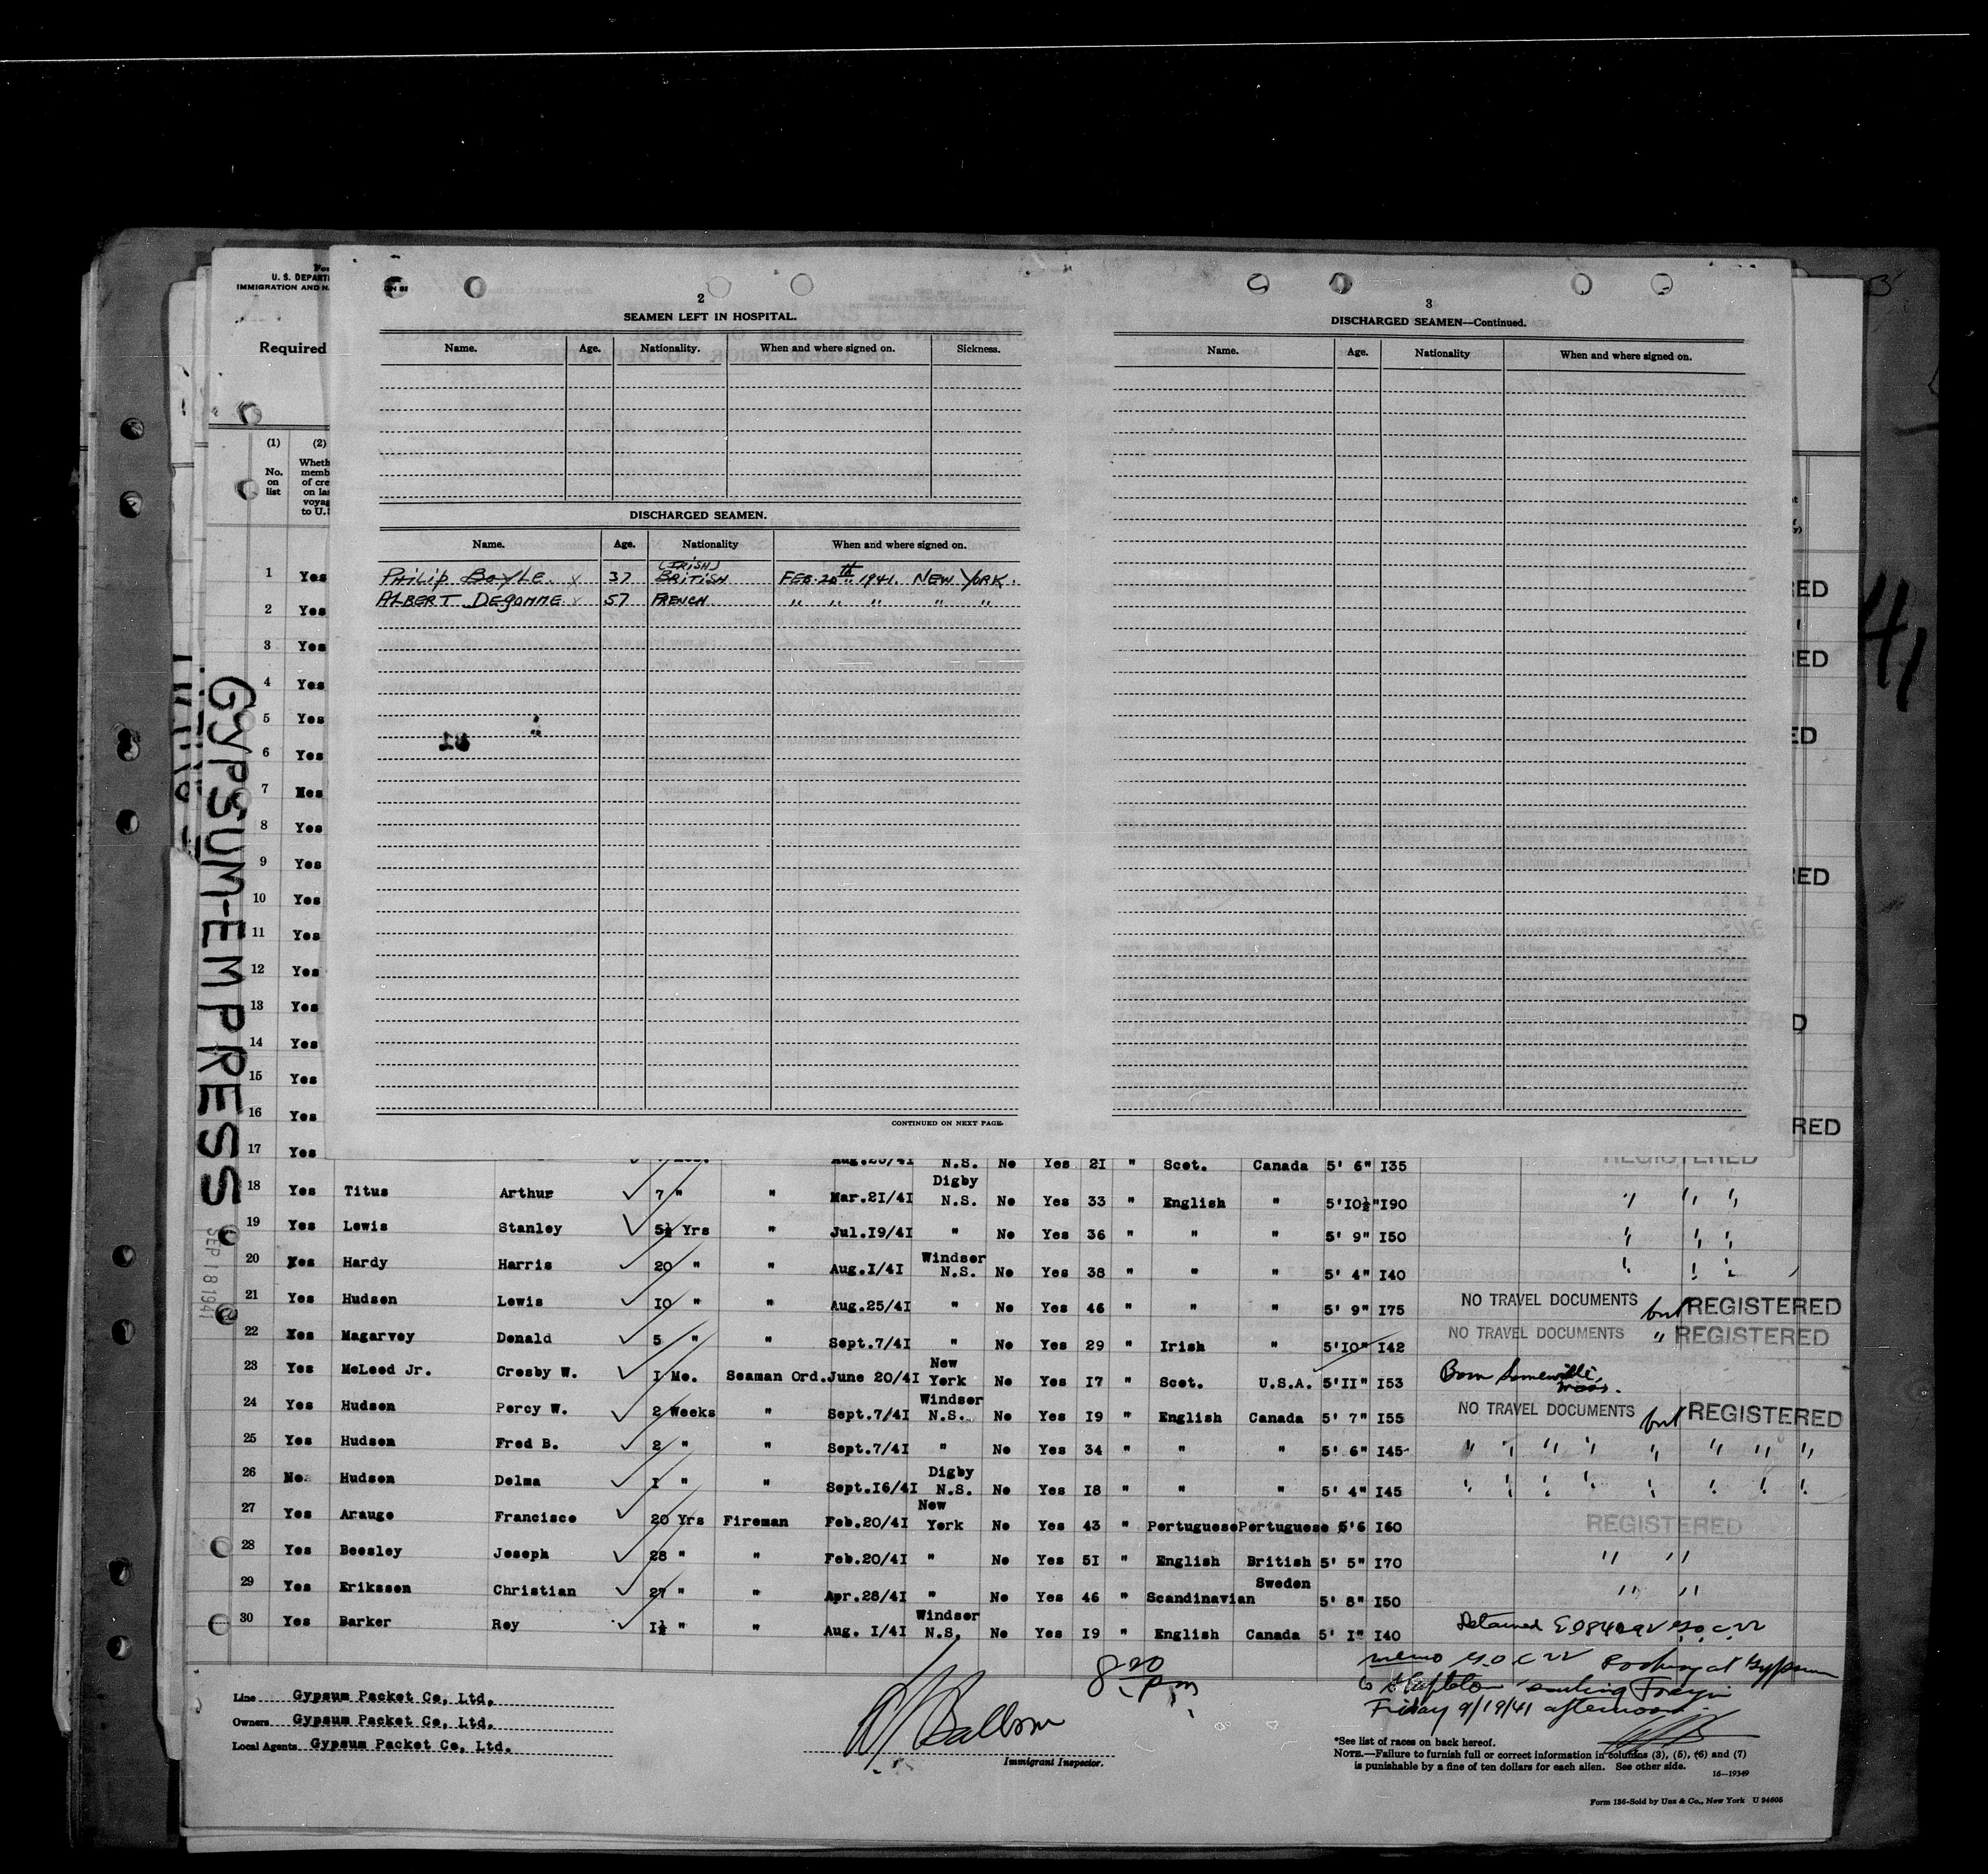 U. S. DEPART
IMMIGRATION AND N
Required
(1) (2)
No. on list
Wheth
memb
of cre
on las
voyag
to U.S
2
SEAMEN LEFT IN HOSPITAL.
Name. Age. Nationality. When and where signed on. Sickness.
DISCHARGED SEAMEN.
Name. Age. Nationality When and where signed on.
(IRISH)
PHILIP BOYLE x 37 BRITISH FEB. 20th 1941. NEW YORK.
ALBERT DEGOMME x 57 FRENCH " " " " "
CONTINUED ON NEXT PAGE.
3
DISCHARGED SEAMEN—Continued.
Name. Age. Nationality When and where signed on.
1 Yes
2 Yes
3 Yes
4 Yes
5 Yes
6 Yes
7 Yes
8 Yes
9 Yes
10 Yes
11 Yes
12 Yes
13 Yes
14 Yes
15 Yes
16 Yes
17 Yes
GYPSUM-EMPRESS
SEP 18 1941
41
Aug.28/41 N.S. No Yes 21 " Scot. Canada 5' 6" 135 REGISTERED
18 Yes Titus Arthur 7 " " Mar.21/41 Digby N.S. No Yes 33 " English " 5'10½" 190 " " "
19 Yes Lewis Stanley 5½ Yrs " Jul.19/41 " No Yes 36 " " " 5' 9" 150 " " "
20 Yes Hardy Harris 20 " " Aug.1/41 Windser N.S. No Yes 38 " " " 5' 4" 140 " " "
21 Yes Hudsen Lewis 10 " " Aug.25/41 " No Yes 46 " " " 5' 9" 175 NO TRAVEL DOCUMENTS but REGISTERED
22 Yes Magarvey Denald 5 " " Sept.7/41 " No Yes 29 " Irish " 5'10" 142 NO TRAVEL DOCUMENTS " REGISTERED
23 Yes McLeed Jr. Cresby W. 1 Me. Seaman Ord. June 20/41 New York No Yes 17 " Scot. U.S.A. 5'11" 153 Born Somerville, Mass.
24 Yes Hudsen Percy W. 2 Weeks " Sept.7/41 Windser N.S. No Yes 19 " English Canada 5' 7" 155 NO TRAVEL DOCUMENTS but REGISTERED
25 Yes Hudsen Fred B. 2 " " Sept.7/41 " No Yes 34 " " " 5' 6" 145 " " " " " " " "
26 Ne. Hudsen Delma 1 " " Sept.16/41 Digby N.S. No Yes 18 " " " 5' 4" 145 " " " " " " " "
27 Yes Arauge Francisce 20 Yrs Fireman Feb.20/41 New York No Yes 43 " Portuguese Portuguese 5'6 160 REGISTERED
28 Yes Beesley Jeseph 28 " " Feb.20/41 " No Yes 51 " English British 5' 5" 170 " "
29 Yes Erikssen Christian 27 " " Apr.28/41 " No Yes 46 " Scandinavian Sweden 5' 8" 150 " "
30 Yes Barker Rey 1½ " " Aug. 1/41 Windser N.S. No Yes 19 " English Canada 5' 1" 140 Detained
memo at Gypsum
Co Stapleton sailing Foreign
Friday 9/19/41 afternoon
8 20 Pm
Line Gypsum Packet Co, Ltd.
Owners Gypsum Packet Co, Ltd.
Local Agents Gypsum Packet Co, Ltd.
Immigrant Inspector.
*See list of races on back hereof.
NOTE.—Failure to furnish full or correct information in columns (3), (5), (6) and (7)
is punishable by a fine of ten dollars for each alien. See other side.
16—19349
Form 136-Sold by Unz & Co., New York U 94605